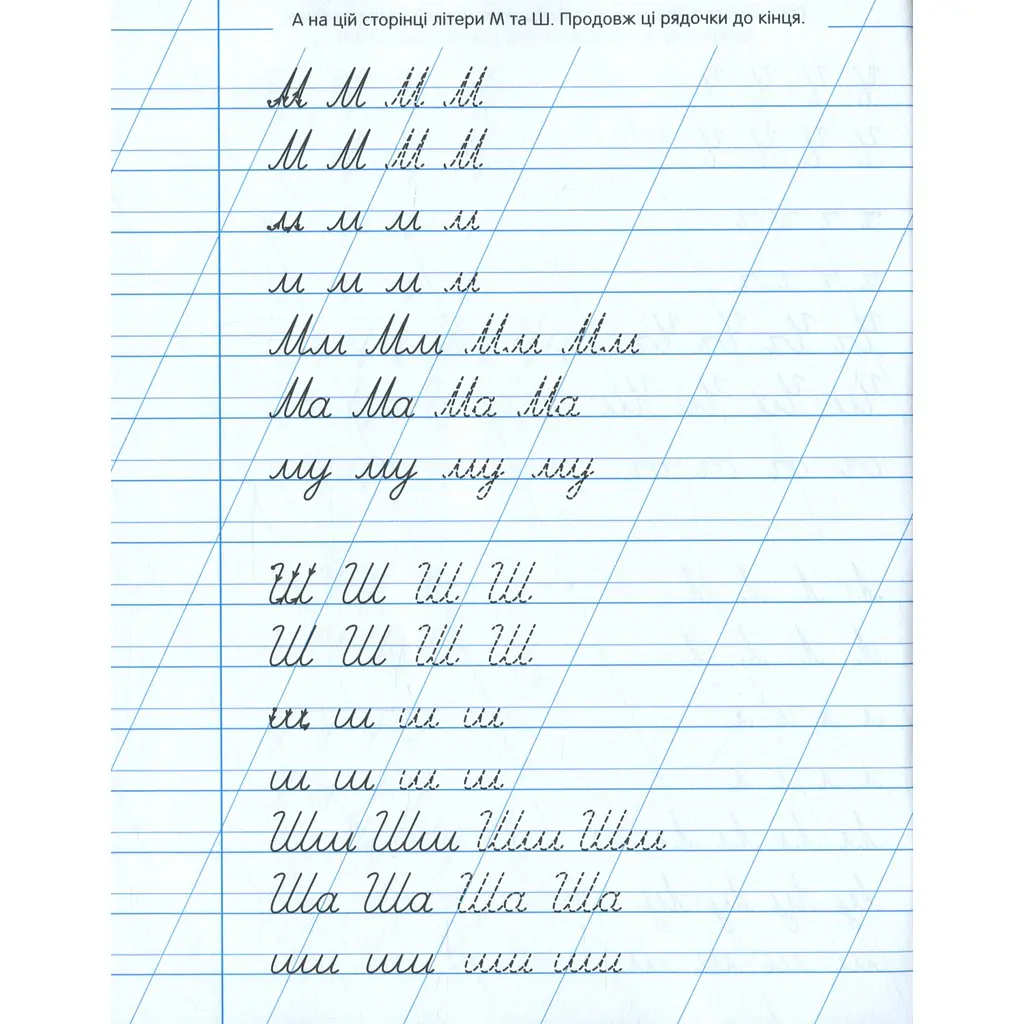 А на цій сторінці літери М та Ш. Продовж ці рядочки до кінця.
М М М М
М М М М
м м м м
м м м м
Мм Мм Мм Мм
Ма Ма Ма Ма
му му му му
Ш Ш Ш Ш
Ш Ш Ш Ш
ш ш ш ш
ш ш ш ш
Шш Шш Шш Шш
Ша Ша Ша Ша
ши ши ши ши